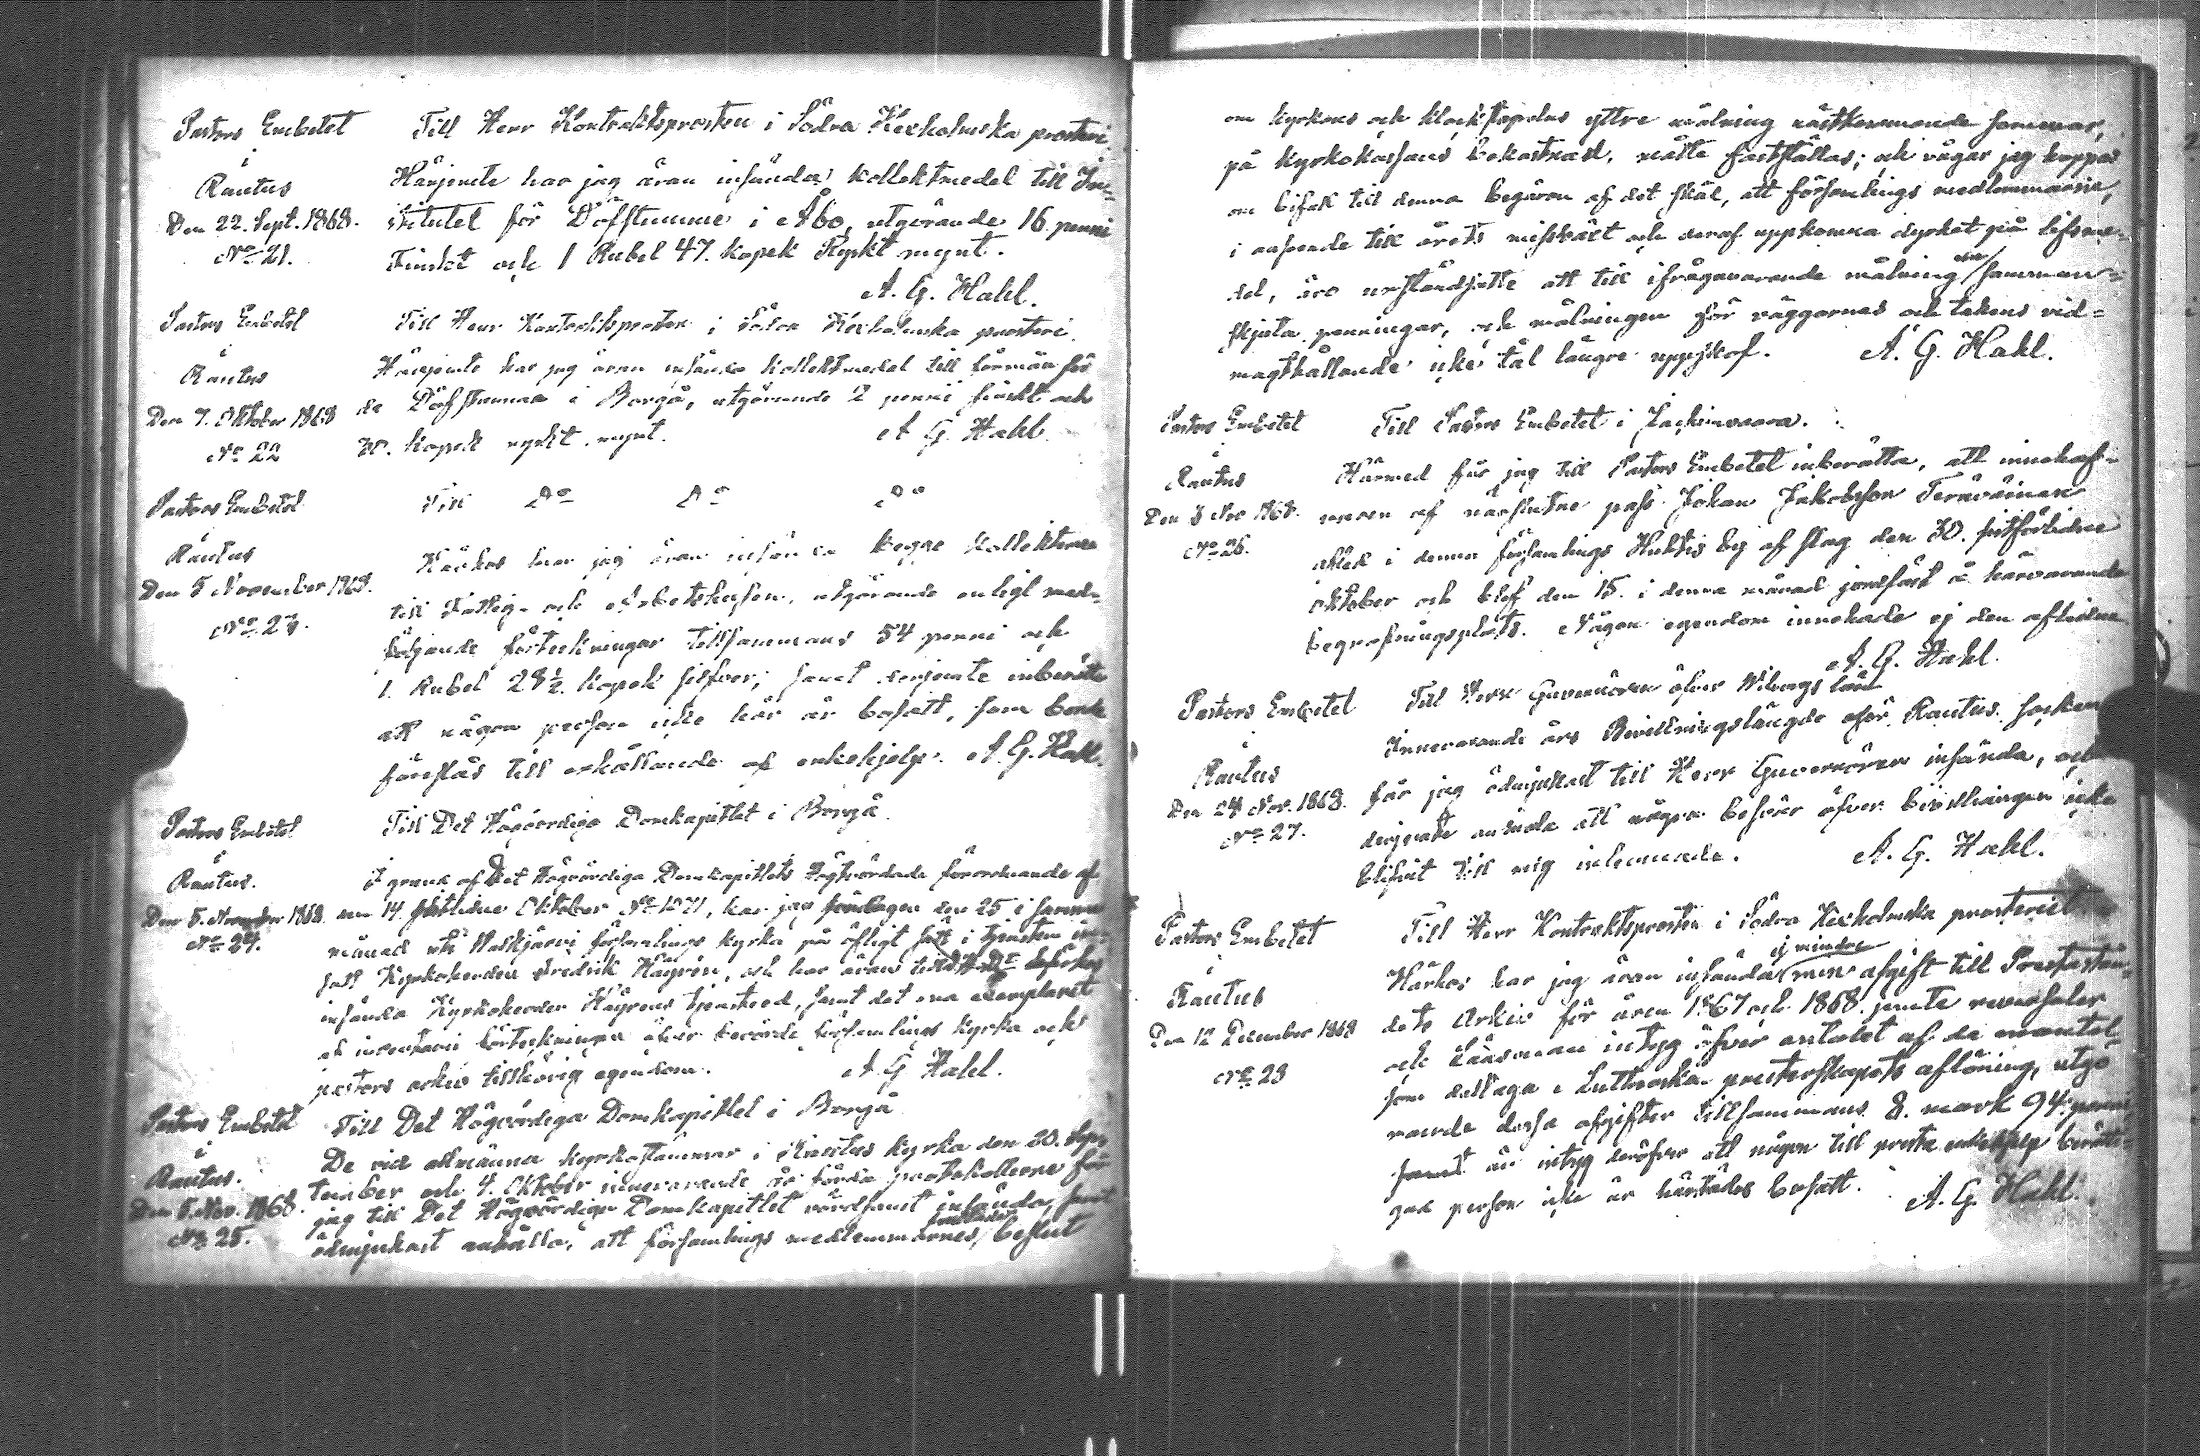 Pastors Embetet
i
Rautus
Den 22. Sept. 1868.
No 21.
Till Herr Kontraktsprosten i Södra Kexholmska prosteri.
Härjemte har jag äran insända kollektmedel till In-
stitutet för Döfstumme i Åbo, utgörande 16. penni
Finskt och 1 Rubel 47. kopek Ryskt mynt.
A. G. Hahl.
Pastors Embetet
i
Rautus
Den 7. Oktober 1868
No 22
Till Herr Kontraktsprosten i Södra Kexholmska prosteri.
Härjemte har jag äran insända kollektmedel till förmån för
de Döfstumma i Borgå, utgörande 2 penni finskt och
kopek ryskt mynt.
A. G. Hahl
Pastors Embetet
i
Rautus
Den 5 November 1868.
No 23.
Till Do Do Do
Härhos har jag äran insända begge kollekterne
till Fattig- och Arbetshusen, utgörande enligt med-
följande förteckningar tillsammans 54 penni och
1. Rubel 28½ kopek silfver; samt derjemte inberätta
att någon person icke här är bosatt, som borde
föreslås till erhållande af enkehjelp. A. G. Hahl.
Pastors Embetet
i
Rautus.
Den 5. November 1868.
No 24.
Till Det Högvördiga Domkapitlet i Borgå.
I grund af Det Högvördiga Domkapitlets högtvördade förordnande af
den 14. sistlidne Oktober No 1071, har jag söndagen den 25 i samma
månad uti Walkjärvi församlings kyrka på öfligt sätt i tjensten in-
satt Kyrkoherden Fredrik Hägrén, och har äran
insända Kyrkoherden Hägréns tjensteed, samt det ena exemplaret
af inventarii förteckningen öfver berörde församlings kyrka och
pastors arkiv tillhörig egendom.
A. G. Hahl.
Pastors Embetet
i
Rautus.
Den 5. Nov. 1868.
No 25.
Till Det Högvördiga Domkapitlet i Borgå
De vid allmänna kyrkostämmor i Rautus kyrka den 20. Sep-
tember och 4. Oktober innevarande år förda protokollerne får
jag till Det Högvördiga Domkapitlet vördsamt insända, samt
ödmjukast anhålla, att församlings medlemmarnes beslut
om kyrkans och klockstapelns yttre målning nästkommande sommar,
på kyrkokassans bekostnad, måtte fastställas; och vågar jag hoppas
om bifall till denna begäran af det skäl, att församlings medlemmarne,
i anseende till årets missväxt och deraf uppkomna dyrhet på lifsme-
del, äro urståndsatte att till ifrågavarande målning sammam-
skjuta penningar, och målningen för väggarnas och takens vid-
magthållande icke tål längre uppskof.
A. G. Hahl.
Pastors Embetet
i
Rautus
Den Nov 1868.
No 26.
Till Pastors Embetet i Jaakimvaara.
Härmed får jag till Pastors Embetet inberätta, att innehaf-
varen af närslutne pass Johan Jakobsson Terävainen
afled i denna församlings Huhtis by af slag den 30. sistförlidne
Oktober och blef den 15. i denna månad jordfäst å härvarande
begrafningsplats. Någon egendom innehade ej den aflidne
A. G. Hahl.
Pastors Embetet
i
Rautus
Den 24 Nov. 1868.
No 27.
Till Herr Guvernören öfver Wiborgs län
Innevarande års Bevillningslängd öfver Rautus socken
får jag ödmjukast till Herr Guvernören insända, och
derjemte anmäla att några besvär öfver bevillningen icke
blifvit till mig inlemnade.
A. G. Hahl.
Pastors Embetet
i
Rautus
Den 12 December 1868
No 28
Till Herr Kontraktsprosten i Södra Kexholmska prosteriet
ej mindre
Härhos har jag äran insända min afgift till Prestestån-
dets Arkiv för åren 1867 och 1868. jemte reversaler
och Länsman intyg öfver antalet af de mantal
som deltaga i Lutherska presterskapets aflöning, utgö-
rande dessa afgifter tillsammans 8. mark 94. penni
samt än intyg deröfver att någon till enkehjelp berätti-
gad person icke är härstädes bosatt.
A. G. Hahl.